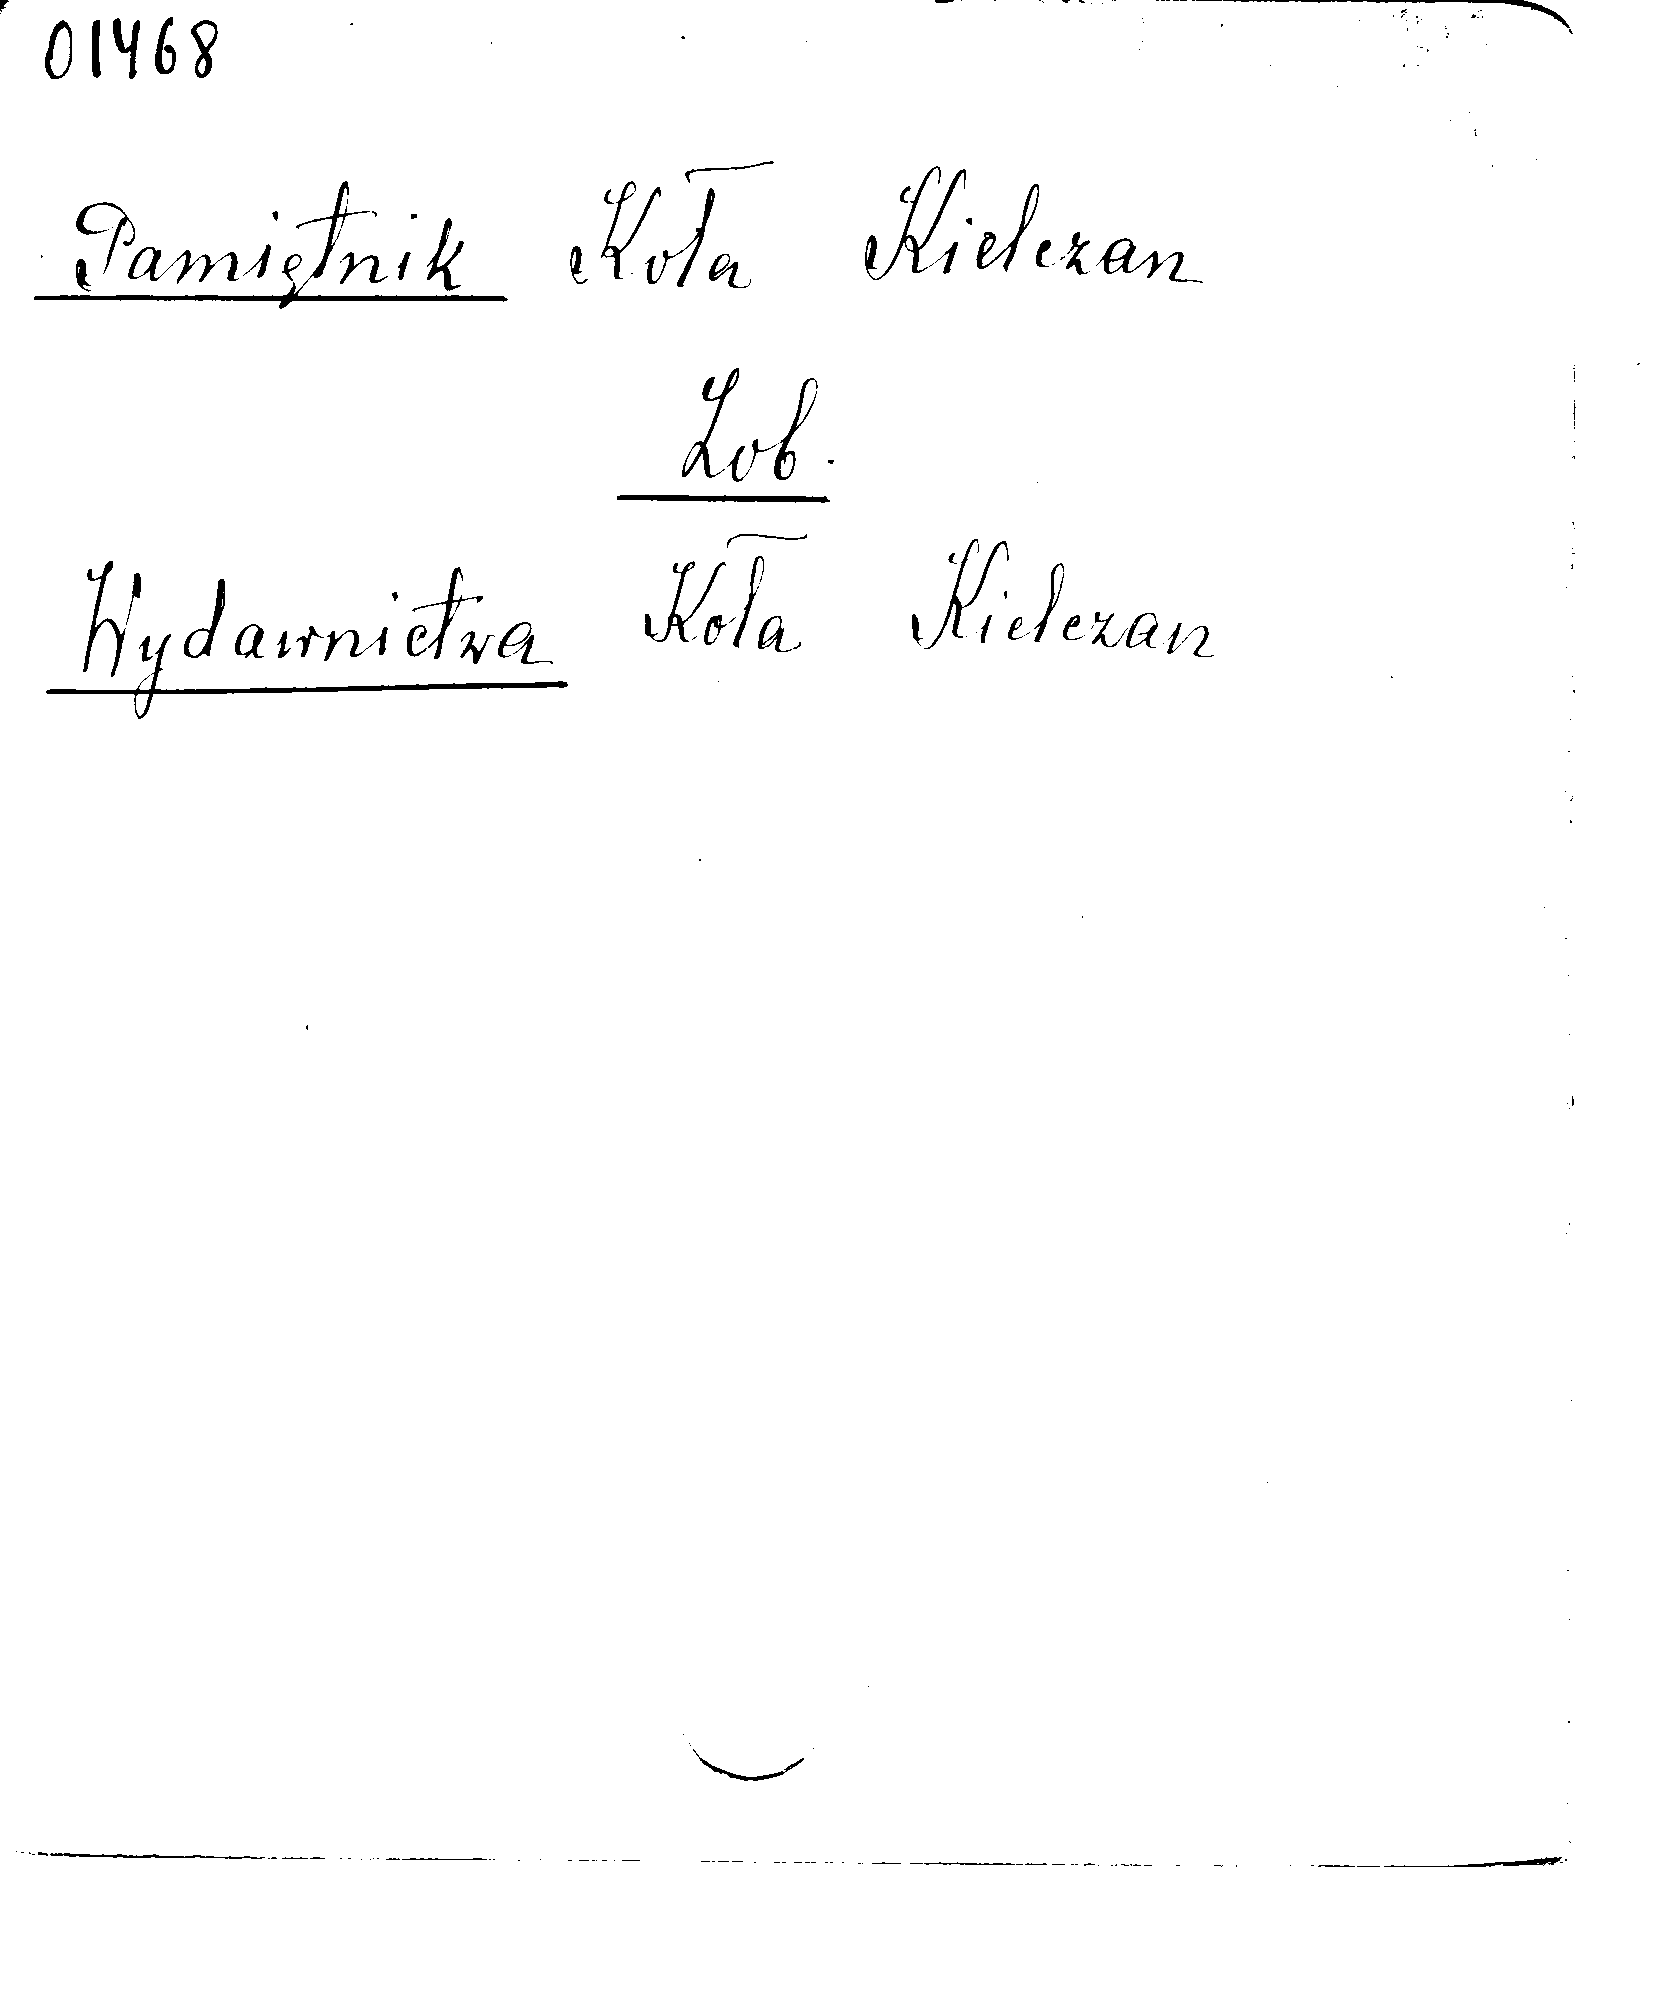 01468
Pamiętnik Koła Kielczan
Zob.
Wydawnictwa Koła Kielczan